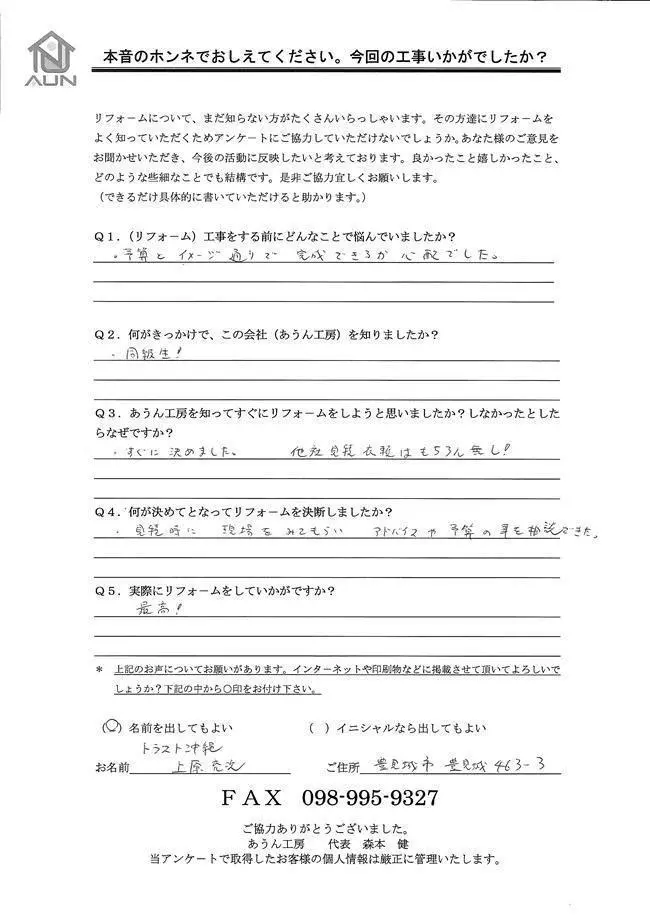 AUN
本音のホンネでおしえてください。今回の工事いかがでしたか？
リフォームについて、まだ知らない方がたくさんいらっしゃいます。その方達にリフォームを
よく知っていただくためアンケートにご協力していただけないでしょうか。あなた様のご意見を
お聞かせいただき、今後の活動に反映したいと考えております。良かったこと嬉しかったこと、
どのような些細なことでも結構です。是非ご協力宜しくお願いします。
（できるだけ具体的に書いていただけると助かります。）
Ｑ１．（リフォーム）工事をする前にどんなことで悩んでいましたか？
。予算と イメージ通りで 完成できるか 心配でした。
Ｑ２．何がきっかけで、この会社（あうん工房）を知りましたか？
・同級生！
Ｑ３．あうん工房を知ってすぐにリフォームをしようと思いましたか？しなかったとした
らなぜですか？
・すぐに 決めました。 他社見積依頼はもちろん無し！
Ｑ４．何が決めてとなってリフォームを決断しましたか？
・見積時に 現場をみてもらい アドバイスや予算の事を相談できた。
Ｑ５．実際にリフォームをしていかがですか？
最高！
＊ 上記のお声についてお願いがあります。インターネットや印刷物などに掲載させて頂いてよろしいで
しょうか？下記の中から〇印をお付け下さい。
（〇）名前を出してもよい （ ）イニシャルなら出してもよい
トラスト沖縄
お名前 上原 充次 ご住所 豊見城市 豊見城 463-3
ＦＡＸ 098-995-9327
ご協力ありがとうございました。
あうん工房 代表 森本 健
当アンケートで取得したお客様の個人情報は厳正に管理いたします。